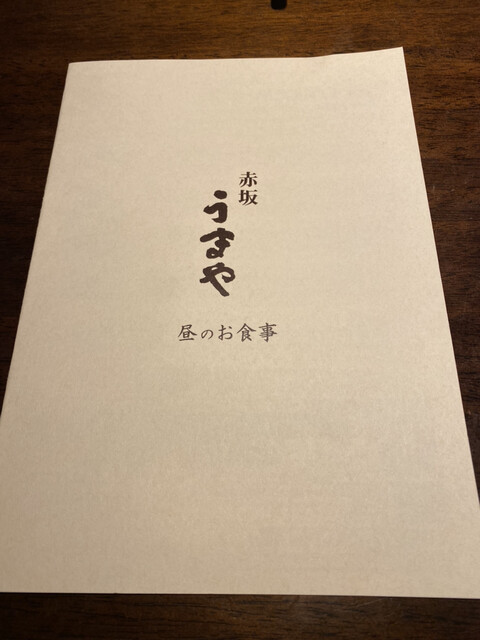 赤坂
うまや
昼のお食事